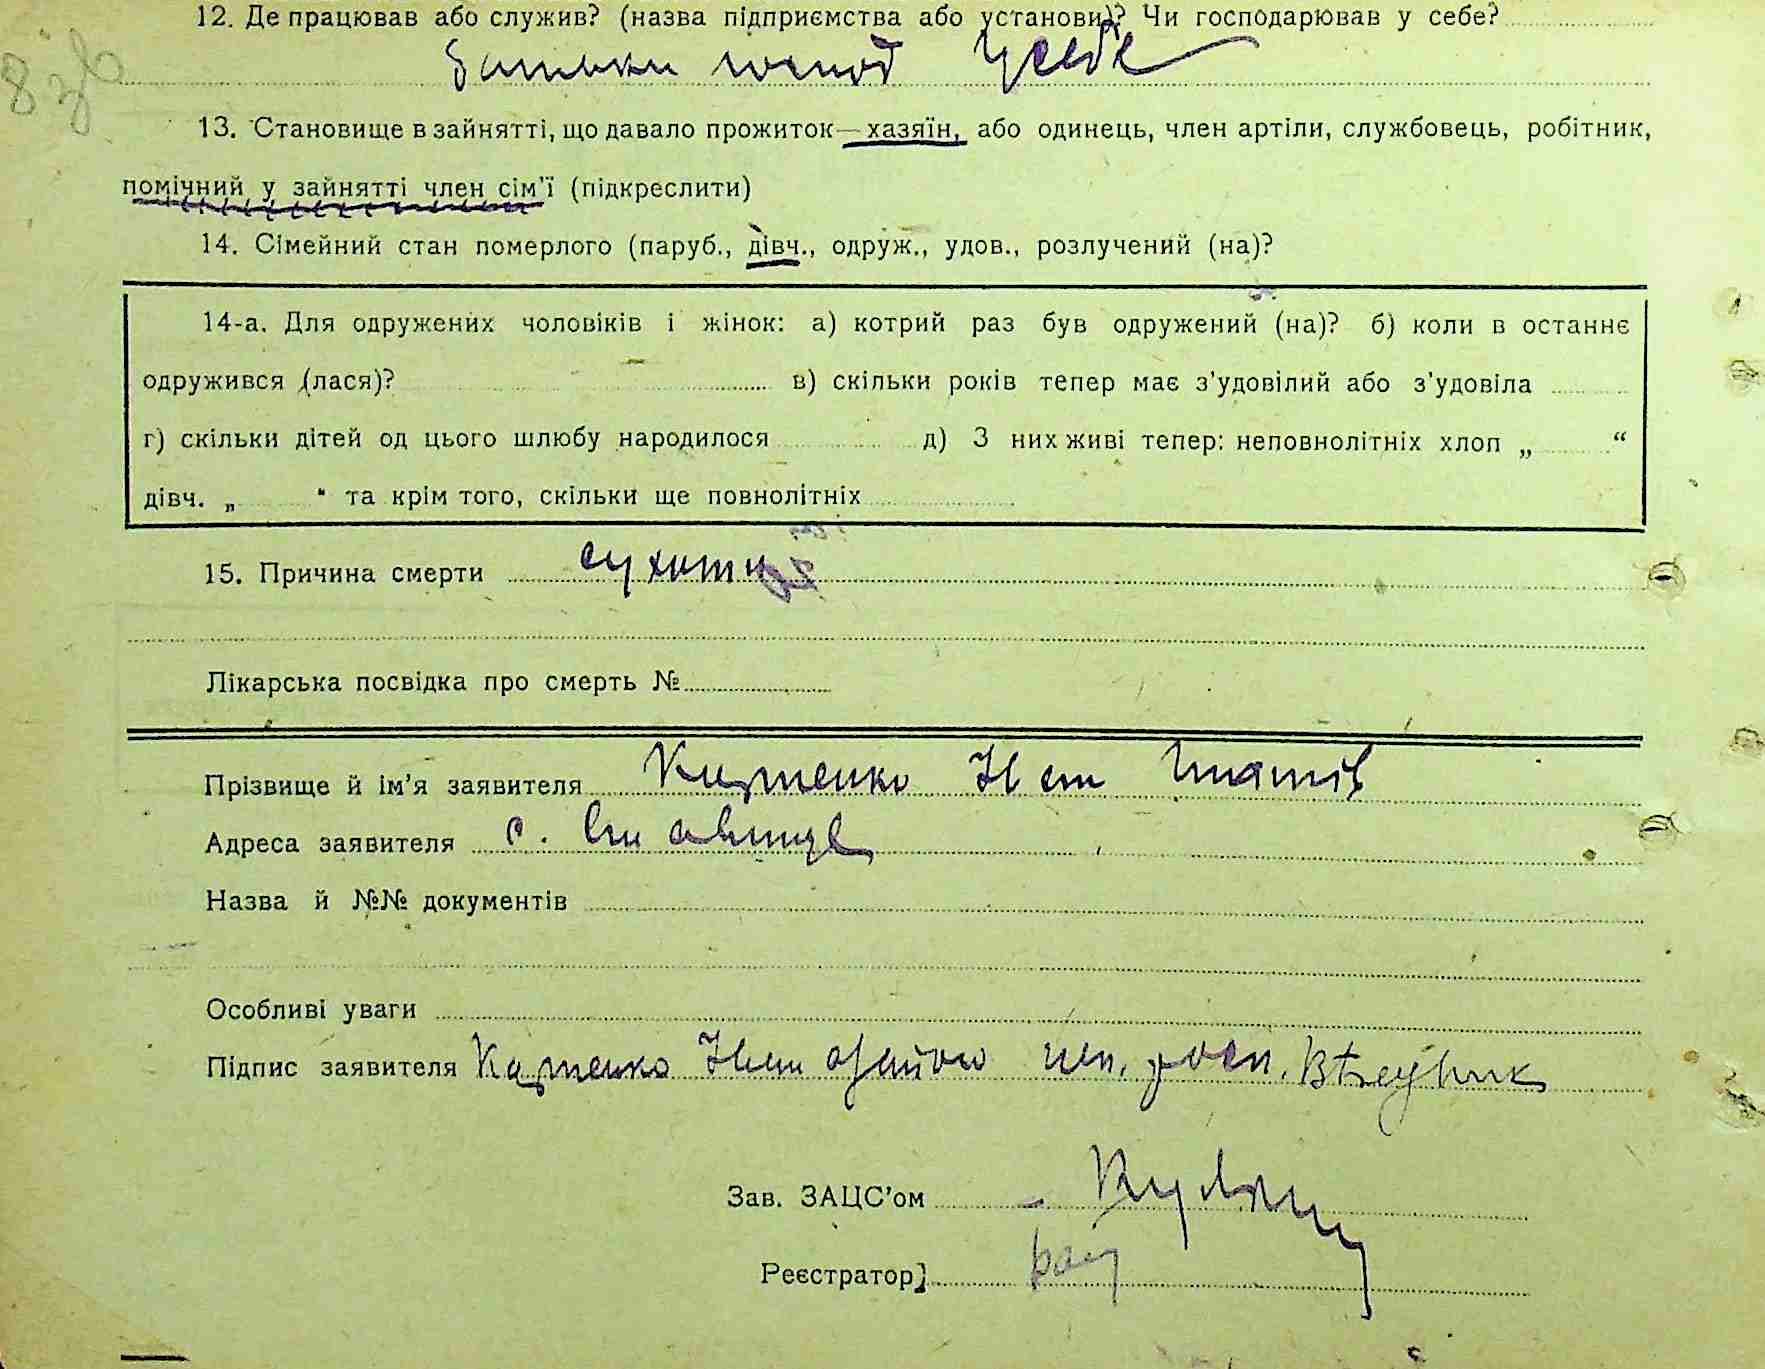 12. Де працював або служив? (назва підприємства або установи)? Чи господарював у себе?
батьки господ у себе
13. Становище в зайнятті, що давало прожиток — хазяїн, або одинець, член артіли, службовець, робітник,
помічний у зайнятті член сім'ї (підкреслити)
14. Сімейний стан померлого (паруб., дівч., одруж., удов., розлучений (на)?
14-а. Для одружених чоловіків і жінок: а) котрий раз був одружений (на)? б) коли в останнє
одружився (лася)? в) скільки років тепер має з'удовілий або з'удовіла
г) скільки дітей од цього шлюбу народилося д) З них живі тепер: неповнолітніх хлоп „ “
дівч. „ “ та крім того, скільки ще повнолітніх
15. Причина смерти сухоти
Лікарська посвідка про смерть №
Прізвище й ім'я заявителя
Адреса заявителя с.
Назва й №№ документів
Особливі уваги
Підпис заявителя
Зав. ЗАЦС'ом
Реєстратор